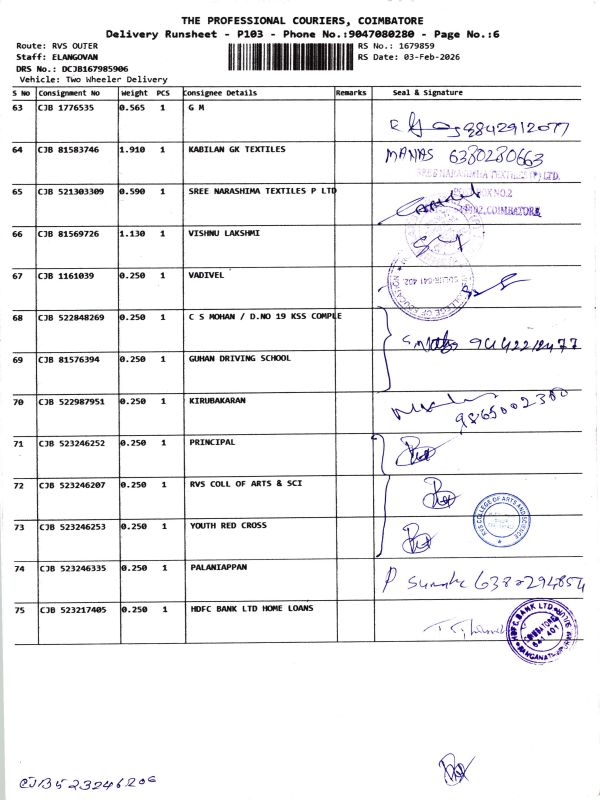 THE PROFESSIONAL COURIERS, COIMBATORE
Delivery Runsheet - P103 - Phone No.:9047080280 - Page No.:6
Route: RVS OUTER
Staff: ELANGOVAN
DRS No.: DCJB167985906
Vehicle: Two Wheeler Delivery
RS No.: 1679859
RS Date: 03-Feb-2026
S No Consignment No Weight PCS Consignee Details Remarks Seal & Signature
63 CJB 1776535 0.565 1 G M 9842912077
64 CJB 81583746 1.910 1 KABILAN GK TEXTILES MANAS 6380280663
65 CJB 521303309 0.590 1 SREE NARASHIMA TEXTILES P LTD
66 CJB 81569726 1.130 1 VISHNU LAKSHMI
67 CJB 1161039 0.250 1 VADIVEL
68 CJB 522848269 0.250 1 C S MOHAN / D.NO 19 KSS COMPLE
69 CJB 81576394 0.250 1 GUHAN DRIVING SCHOOL
70 CJB 522987951 0.250 1 KIRUBAKARAN
71 CJB 523246252 0.250 1 PRINCIPAL
72 CJB 523246207 0.250 1 RVS COLL OF ARTS & SCI
RVS COLLEGE OF ARTS AND SCIENCE
73 CJB 523246253 0.250 1 YOUTH RED CROSS
74 CJB 523246335 0.250 1 PALANIAPPAN
75 CJB 523217405 0.250 1 HDFC BANK LTD HOME LOANS
HDFC BANK LTD
CJB523246206